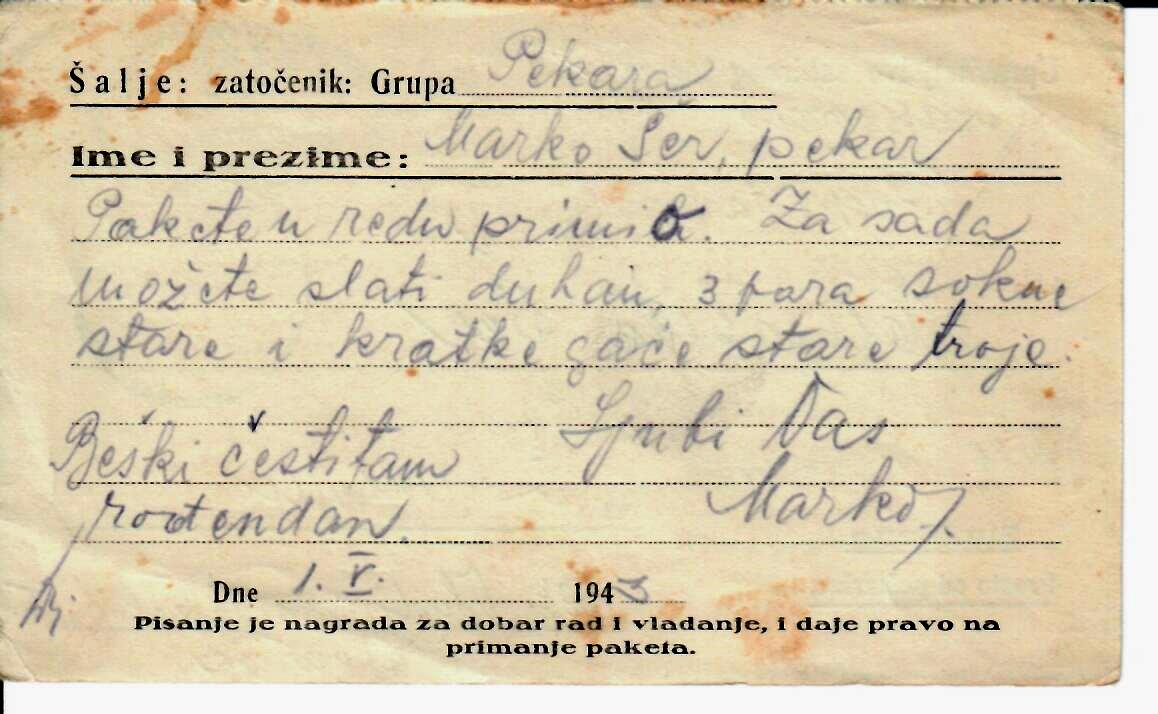 Šalje: zatočenik: Grupa Pekara
Ime i prezime: Marko Šer, pekar
Pakete u redu primio. Za sada
možete slati duhan, 3 para sokne
stare i kratke gaće stare troje.
Ljubi Vas
Beški čestitam
Marko
rođendan.
Dne 1. V. 1943
Pisanje je nagrada za dobar rad i vladanje, i daje pravo na
primanje paketa.